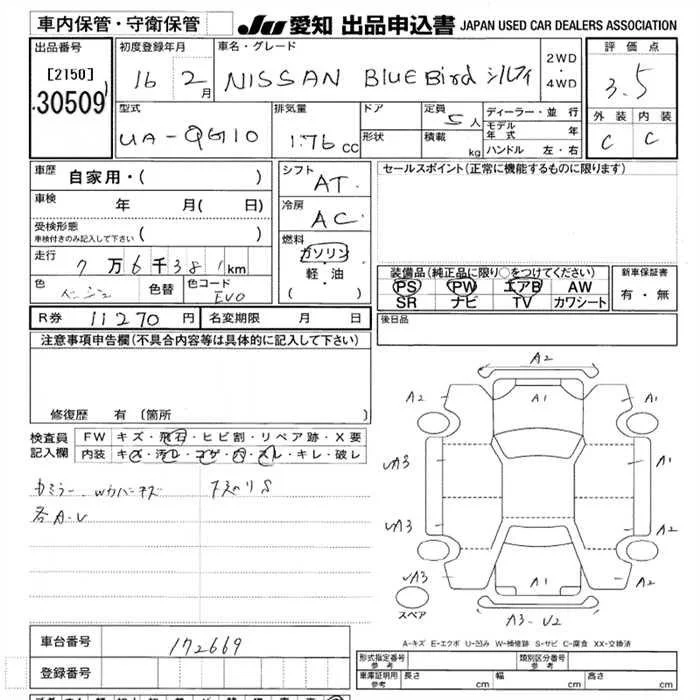 車内保管・守衛保管 JU 愛知 出品申込書 JAPAN USED CAR DEALERS ASSOCIATION
出品番号 [2150] 30509
初度登録年月 16 2月
車名・グレード NISSAN BlueBird シルフィ
2WD・4WD
評価点 3.5
外装 内装
C C
型式 UA-QG10
排気量 1.76cc
ドア
形状
定員 5人
積載 kg
ディーラー・並行
モデル年式 年
ハンドル 左・右
車歴 自家用・( )
車検 年 月( 日)
受検形態 車検付きのみ記入して下さい ( )
走行 7万6千381km
色 ベージュ 色替 色コード EV0
シフト AT
冷房 AC
燃料 ガソリン・軽油 ( )
セールスポイント(正常に機能するものに限ります)
装備品(純正品に限り○をつけてください)
PS PW エアB AW
SR ナビ TV カワシート
新車保証書 有・無
R券 11270円 名変期限 月 日
後日品
注意事項申告欄(不具合内容等は具体的に記入して下さい)
修復歴 有 (箇所
検査員記入欄
FW キズ・飛石・ヒビ割・リペア跡・X要
内装 キズ・汚レ・コゲ・穴・スレ・キレ・破レ
各A-U
A2
A2 A1 A1
A3 A1
A3
A3 A1 A2
スペア
A3-U2
A-キズ E-エクボ U-凹み W-補修跡 S-サビ C-腐食 XX-交換済
車台番号 172669
登録番号
形式指定番号 参考 類別区分番号 参考
車庫証明用 参考 長さ cm 幅 cm 高さ cm